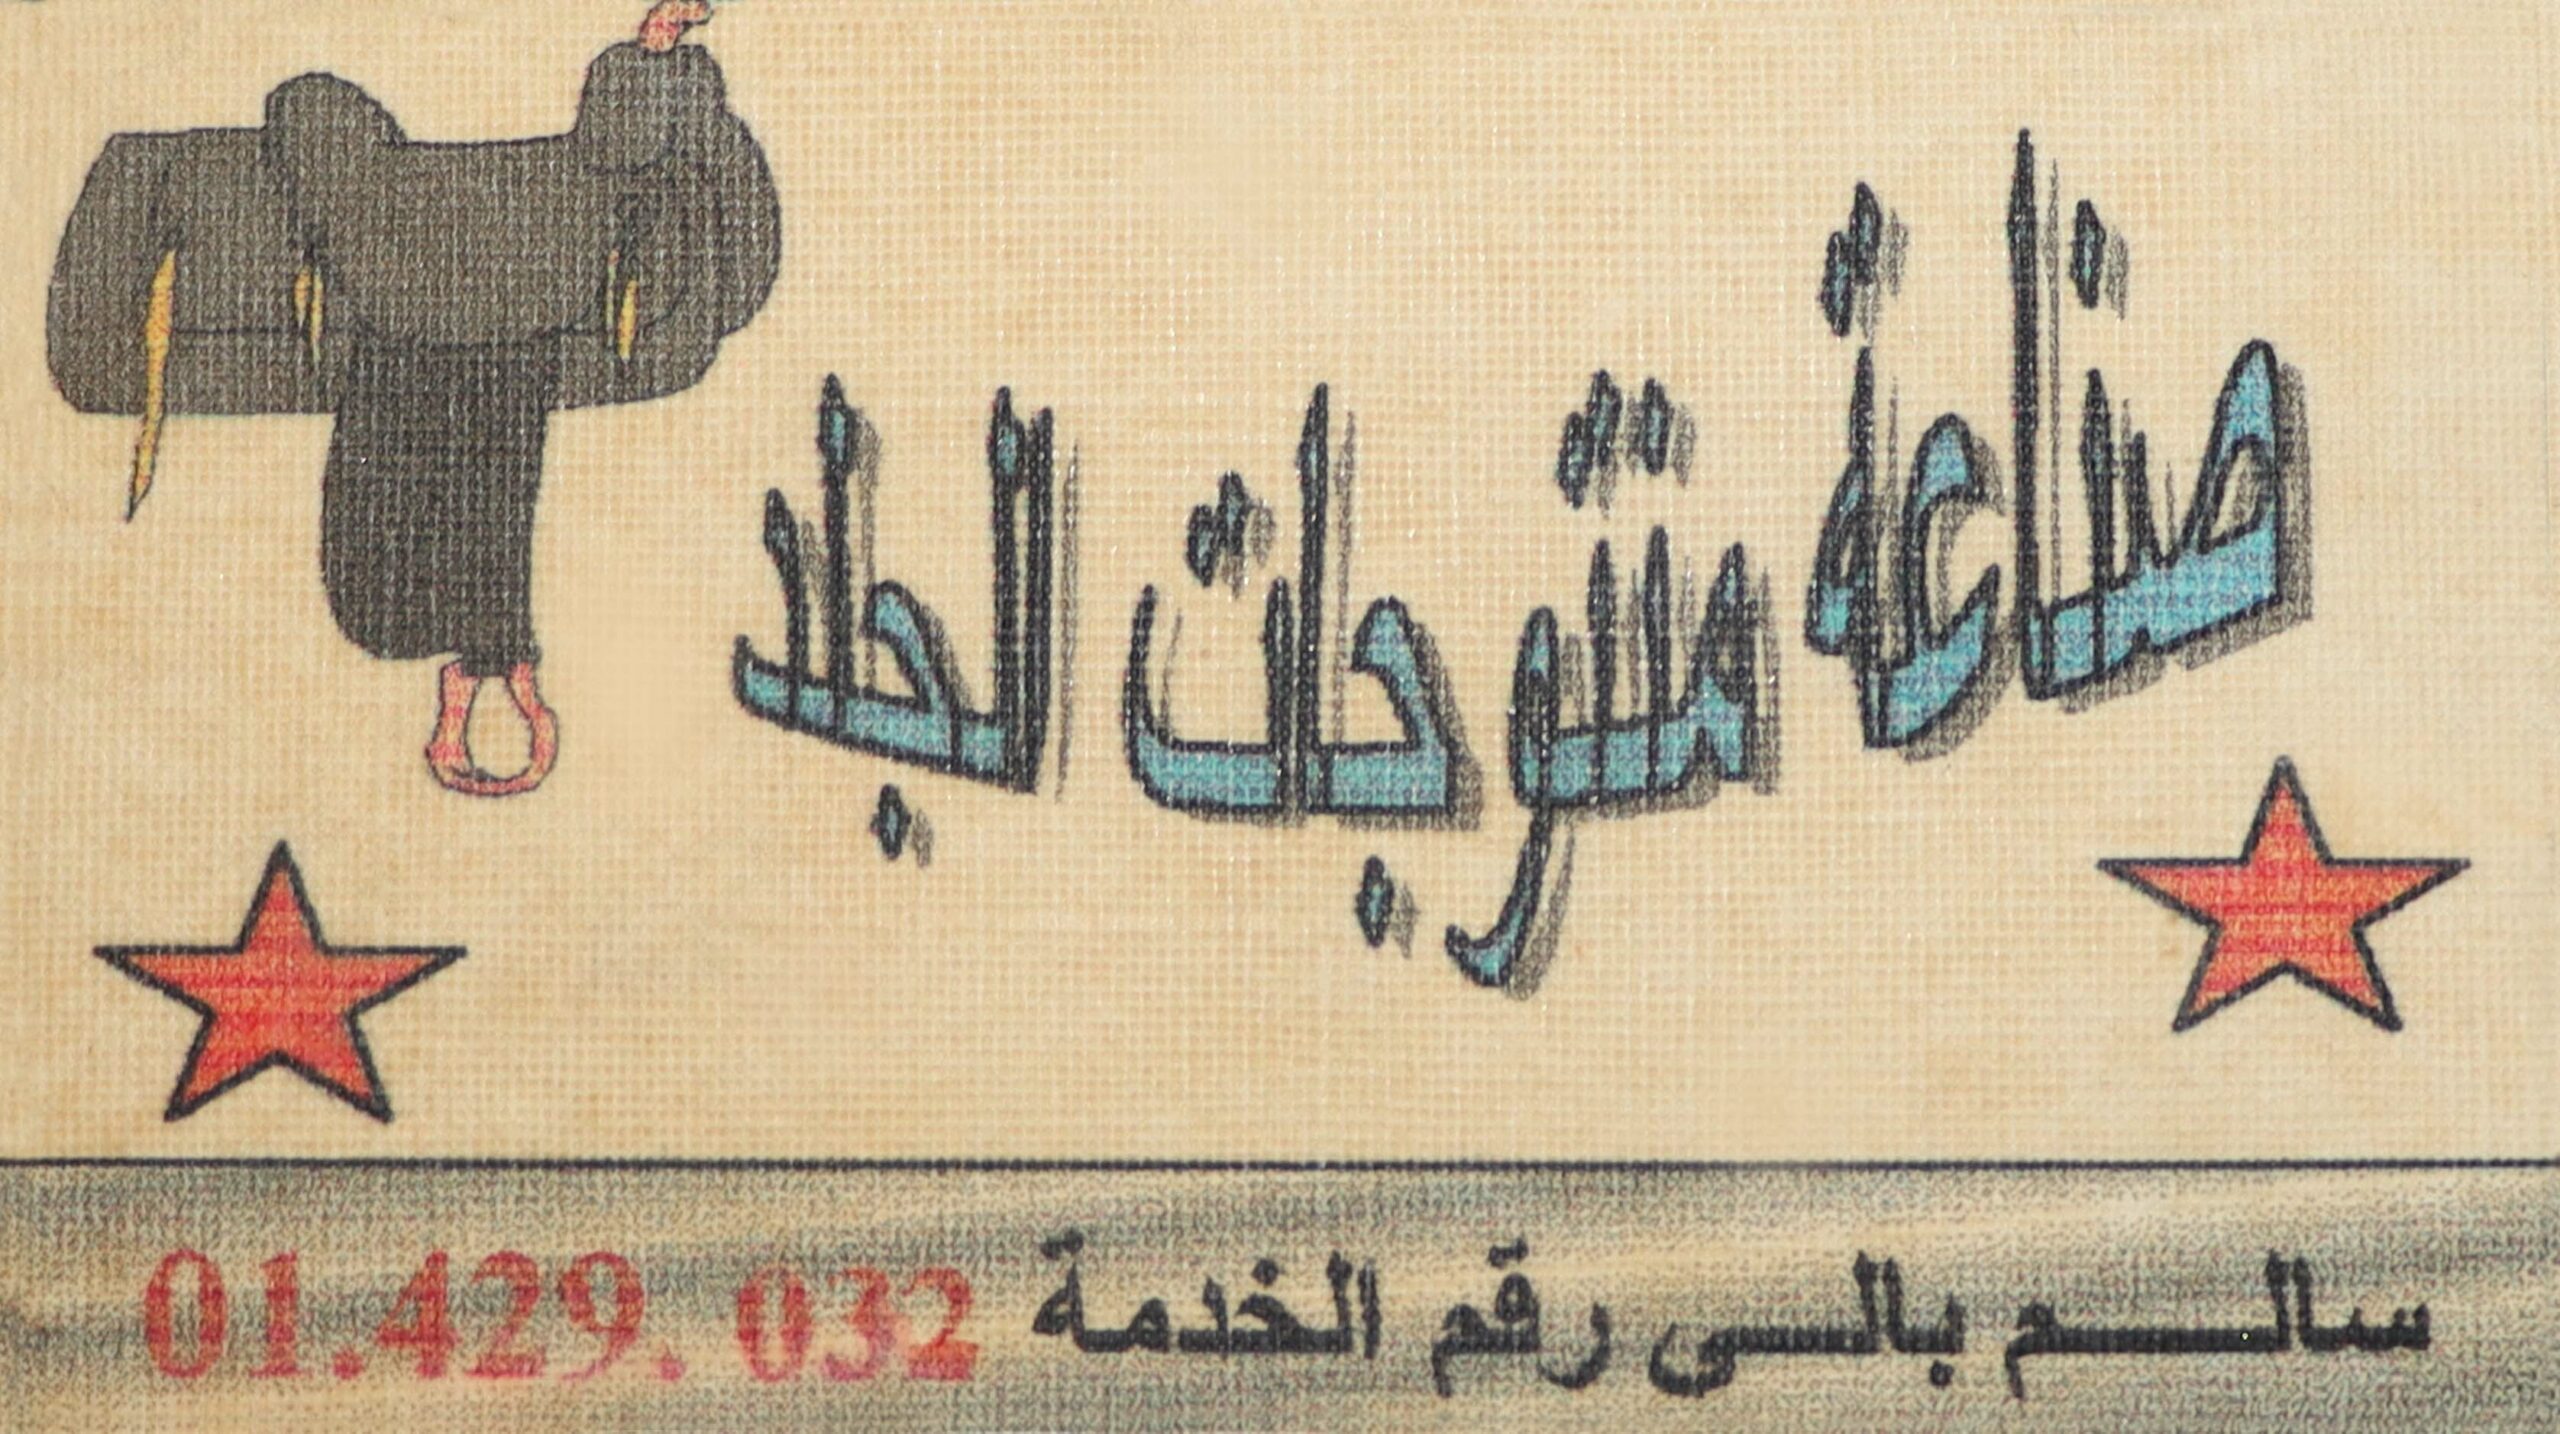 صناعة منتوجات الجلد
سالم بالى رقم الخدمة 01.429.032